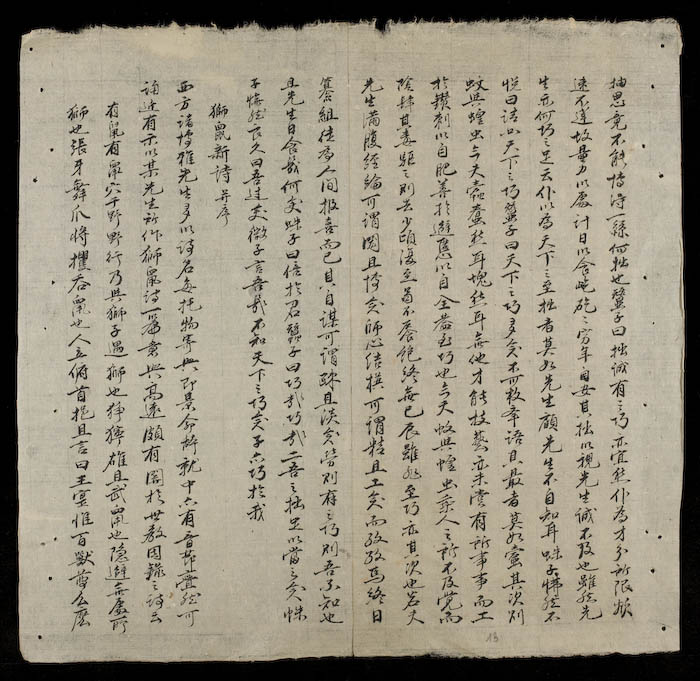 抽思竟不能博詩一緜何拙也蠶子曰拙誠有之巧亦宜然仆為才分所限
速不達故量力以處計日以食矻矻窮年自安其拙以視先生誠不及也雖然先
生亦何巧之足云仆以為天下之至拙者莫如先生顧先生不自知耳蛛子怫然不
悅曰請以天下之巧蠶子曰天下之巧多矣不可枚舉語其最者莫如蠹其次則
蚊與蝗虫今夫蠹蠢然耳塊然耳無他才能技藝亦未嘗有所事事而工
於鑽刺以自肥善於避患以自全蓋至巧也今夫蚊與蝗虫乘人之所不及覺而
陰肆其毒驅之則去少頃復至苟不麏饱終無已辰雖非至巧亦其次也若夫
先生滿腹經綸可謂閎且博矣師心結撰可謂精且工矣而孜孜焉終日
纂組徒為人間報喜而已其自謀可謂疎且淡矣勞則有之巧則吾不知也
且先生日食幾何矣蛛子曰倍於君蠶子曰巧哉巧哉一吾之拙足以當之矣蛛
子憮然良久曰吾過矣微子言吾幾不知天下之巧矣子亦巧於我
獅鼠新詩 并序
西方諸博雅先生多以詩名每托物寄興即景命辭就中亦有音節鏗然可
誦近有示以某先生所作獅鼠詩一篇意興高遠頗有關於世教因錄之詩云
有鼠有鼠穴于野野行乃與獅子遇獅也猙獰雄且武鼠也隐避無處所
獅也張牙舞爪將攫吞鼠也人立俯首把且言曰王寔惟百獸尊么麽
13